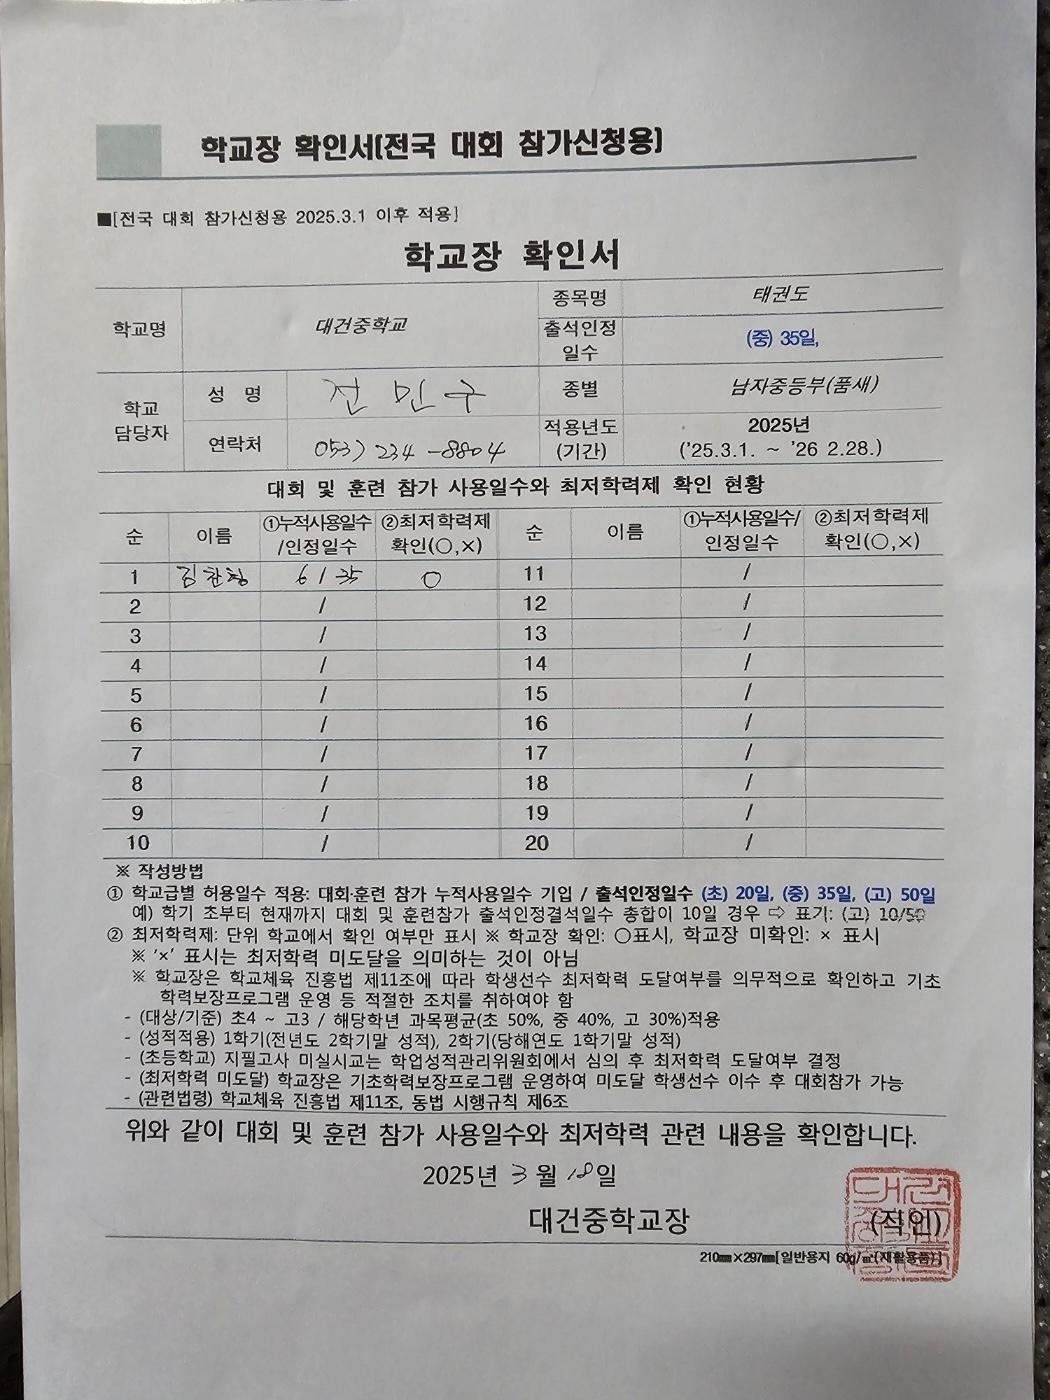 학교장 확인서(전국 대회 참가신청용)
■[전국 대회 참가신청용 2025.3.1 이후 적용]
학교장 확인서
학교명 대건중학교 종목명 태권도
출석인정 일수 (중) 35일,
학교 담당자 성 명 전민구 종별 남자중등부(품새)
연락처 053) 234-8804 적용년도 (기간) 2025년 ('25.3.1. ~ '26 2.28.)
대회 및 훈련 참가 사용일수와 최저학력제 확인 현황
순 이름 ①누적사용일수/인정일수 ②최저학력제 확인(○,×) 순 이름 ①누적사용일수/인정일수 ②최저학력제 확인(○,×)
1 김찬형 6 / 35 ○ 11 /
2 / 12 /
3 / 13 /
4 / 14 /
5 / 15 /
6 / 16 /
7 / 17 /
8 / 18 /
9 / 19 /
10 / 20 /
※ 작성방법
① 학교급별 허용일수 적용: 대회·훈련 참가 누적사용일수 기입 / 출석인정일수 (초) 20일, (중) 35일, (고) 50일
예) 학기 초부터 현재까지 대회 및 훈련참가 출석인정결석일수 총합이 10일 경우 ⇨ 표기: (고) 10/50
② 최저학력제: 단위 학교에서 확인 여부만 표시 ※ 학교장 확인: ○표시, 학교장 미확인: × 표시
※ '×' 표시는 최저학력 미도달을 의미하는 것이 아님
※ 학교장은 학교체육 진흥법 제11조에 따라 학생선수 최저학력 도달여부를 의무적으로 확인하고 기초
학력보장프로그램 운영 등 적절한 조치를 취하여야 함
- (대상/기준) 초4 ~ 고3 / 해당학년 과목평균(초 50%, 중 40%, 고 30%)적용
- (성적적용) 1학기(전년도 2학기말 성적), 2학기(당해연도 1학기말 성적)
- (초등학교) 지필고사 미실시교는 학업성적관리위원회에서 심의 후 최저학력 도달여부 결정
- (최저학력 미도달) 학교장은 기초학력보장프로그램 운영하여 미도달 학생선수 이수 후 대회참가 가능
- (관련법령) 학교체육 진흥법 제11조, 동법 시행규칙 제6조
위와 같이 대회 및 훈련 참가 사용일수와 최저학력 관련 내용을 확인합니다.
2025년 3월 18일
대건중학교장 (직인)
210㎜×297㎜[일반용지 60g/㎡(재활용품)]